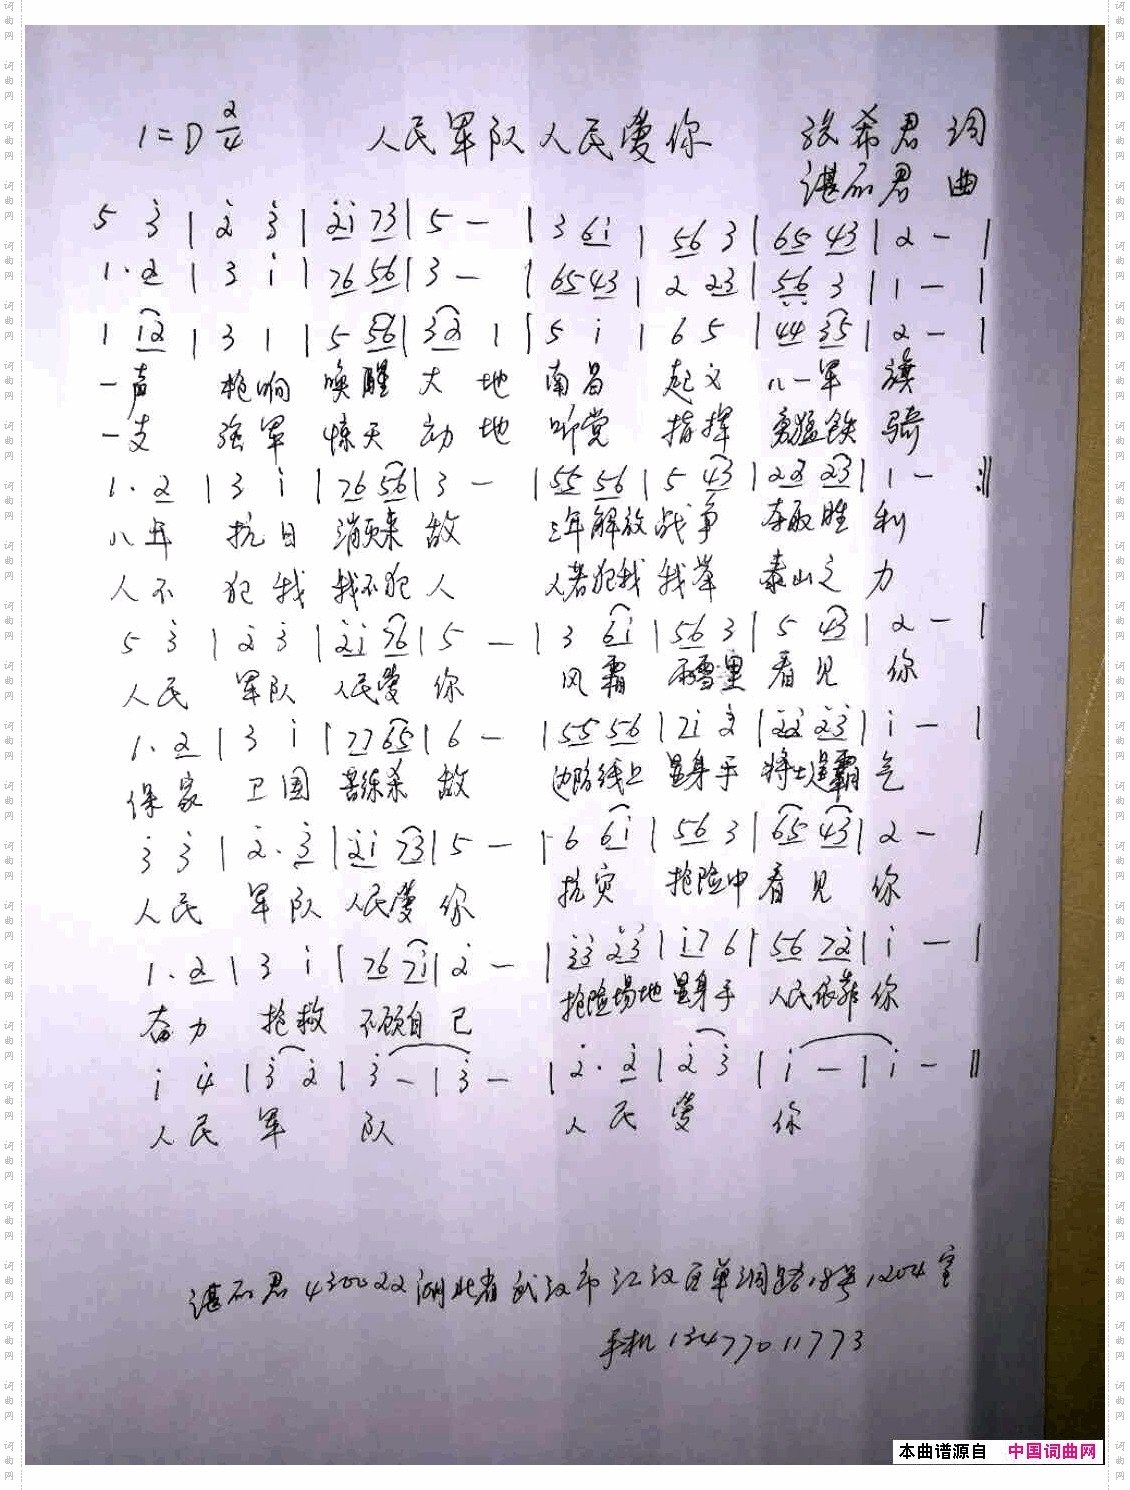 1=D 2/4 人民军队人民爱你 张希君 词
谌丽君 曲
5 3̇ | 2̇ 3̇ | 2̇1̇ 73̇ | 5 — | 3 61̇ | 56 3 | 65 43 | 2 — |
1· 2 | 3 1̇ | 76 56 | 3 — | 6543 | 2 23 | 5̣6̣ 3 | 1 — |
1 12 | 3 1 | 5 56 | 32 1 | 5 1̇ | 6 5 | 44 35 | 2 — |
一声 枪响 唤醒 大 地 南昌 起义 八一军 旗
一支 强军 惊天 动 地 听党 指挥 勇猛铁 骑
1· 2 | 3 1̇ | 76 56 | 3 — | 55 56 | 5 43 | 22 23 | 1 — :||
八年 抗日 消灭来 敌 三年解放 战争 夺取胜 利
人不 犯我 我不犯 人 人若犯我 我举 泰山之 力
5 3̇ | 2̇ 3̇ | 2̇1̇ 76 | 5 — | 3 61̇ | 56 3 | 5 43 | 2 — |
人民 军队 人民爱 你 风霜 雨雪里 看见 你
1· 2 | 3 1̇ | 77 65 | 6 — | 55 56 | 71̇ 2̇ | 2̇2̇ 2̇3̇ | 1̇ — |
保家 卫国 苦练杀 敌 边防线上 显身手 将士逞霸 气
3̇ 3̇ | 2̇· 3̇ | 2̇1̇ 73̇ | 5 — | 6 61̇ | 56 3 | 65 43 | 2 — |
人民 军队 人民爱 你 抗灾 抢险中 看见 你
1· 2 | 3 1̇ | 76 71̇ | 2̇ — | 3̇3̇ 2̇3̇ | 1̇7 6 | 56 72̇ | 1̇ — |
奋力 抢救 不顾自 己 抢险场地 显身手 人民依靠 你
1̇ 4̇ | 3̇ 2̇ | 3̇ — | 3̇ — | 2̇· 2̇ | 2̇ 3̇ | 1̇ — | 1̇ — ||
人民 军 队 人民 爱 你
谌丽君 430022 湖北省武汉市江汉区单洞路18号1204室
手机 13477011773
本曲谱源自 中国词曲网
词曲网